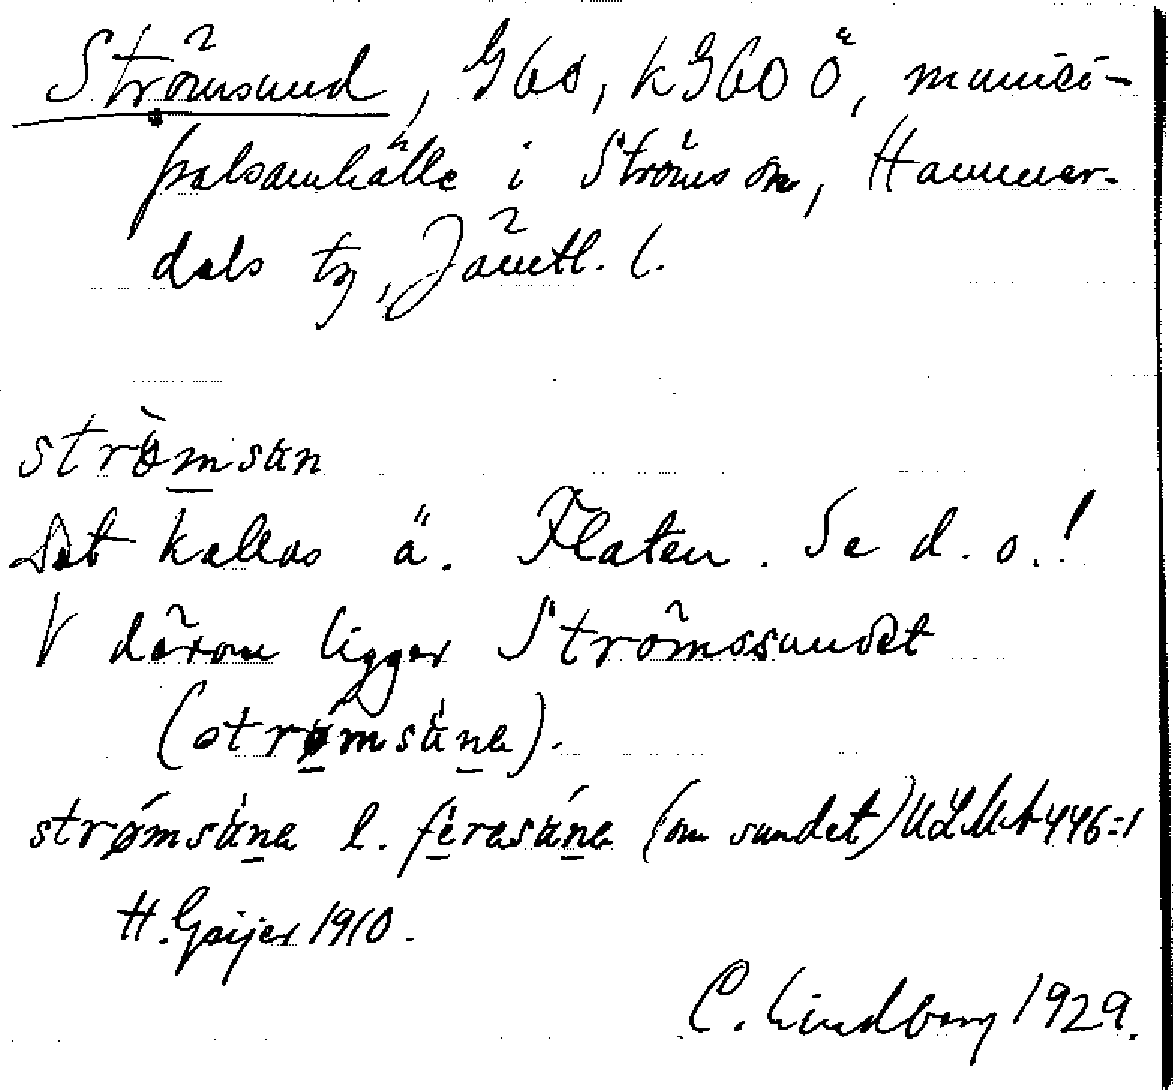 Strömsund, G60, kG60 Ö, munici-
palsamhälle i Ströms sn, Hammer-
dals tg, Jämtl. l.
strömsun
Det kallas ä. Flaten. Se d. o.!
V därom ligger Strömssundet
(strømsúne).
strømsúne l. férasúne (om sundet) ULMA 446:1
H. Geijer 1910.
C. Lindberg 1929.